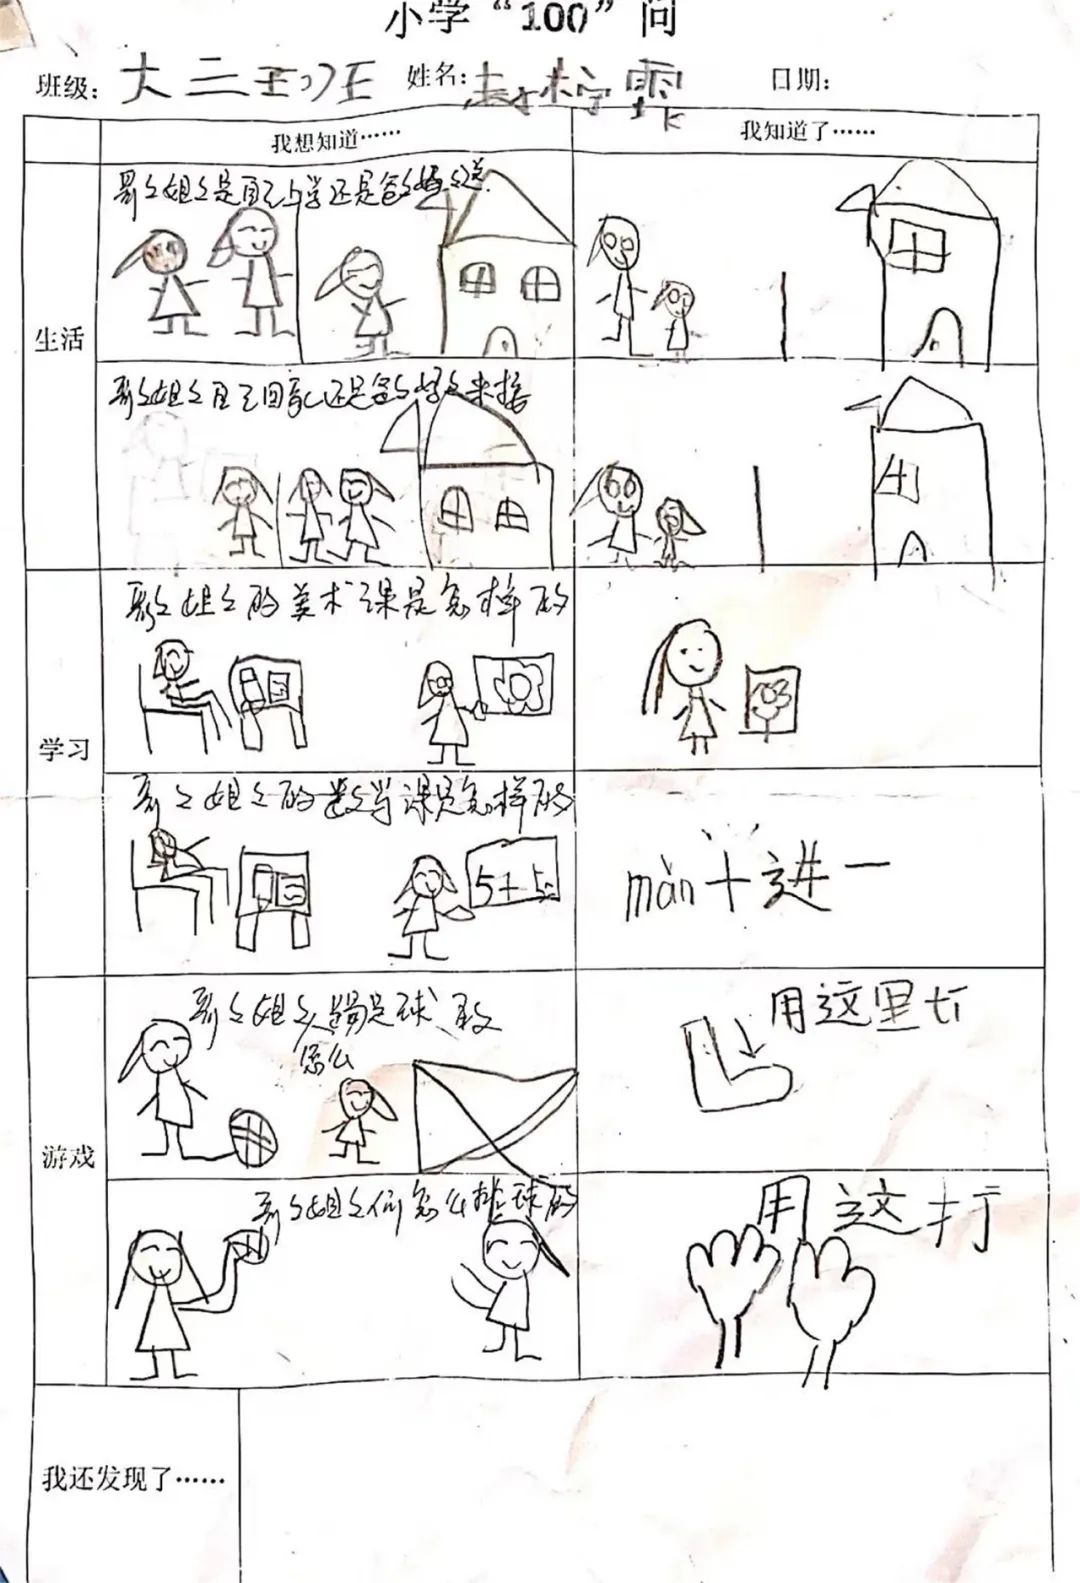 小学“100”问
班级：大三班 姓名： 日期：
我想知道…… 我知道了……
生活
哥々姐々是自己上学还是爸々妈々送
哥々姐々自己回家还是爸々妈々来接
学习
哥々姐々的美术课是怎样的
哥々姐々的数学课是怎样的
5+5
màn十进一
游戏
哥々姐々踢足球
怎么
用这里打
哥々姐々们怎么排球的
用这打
我还发现了……